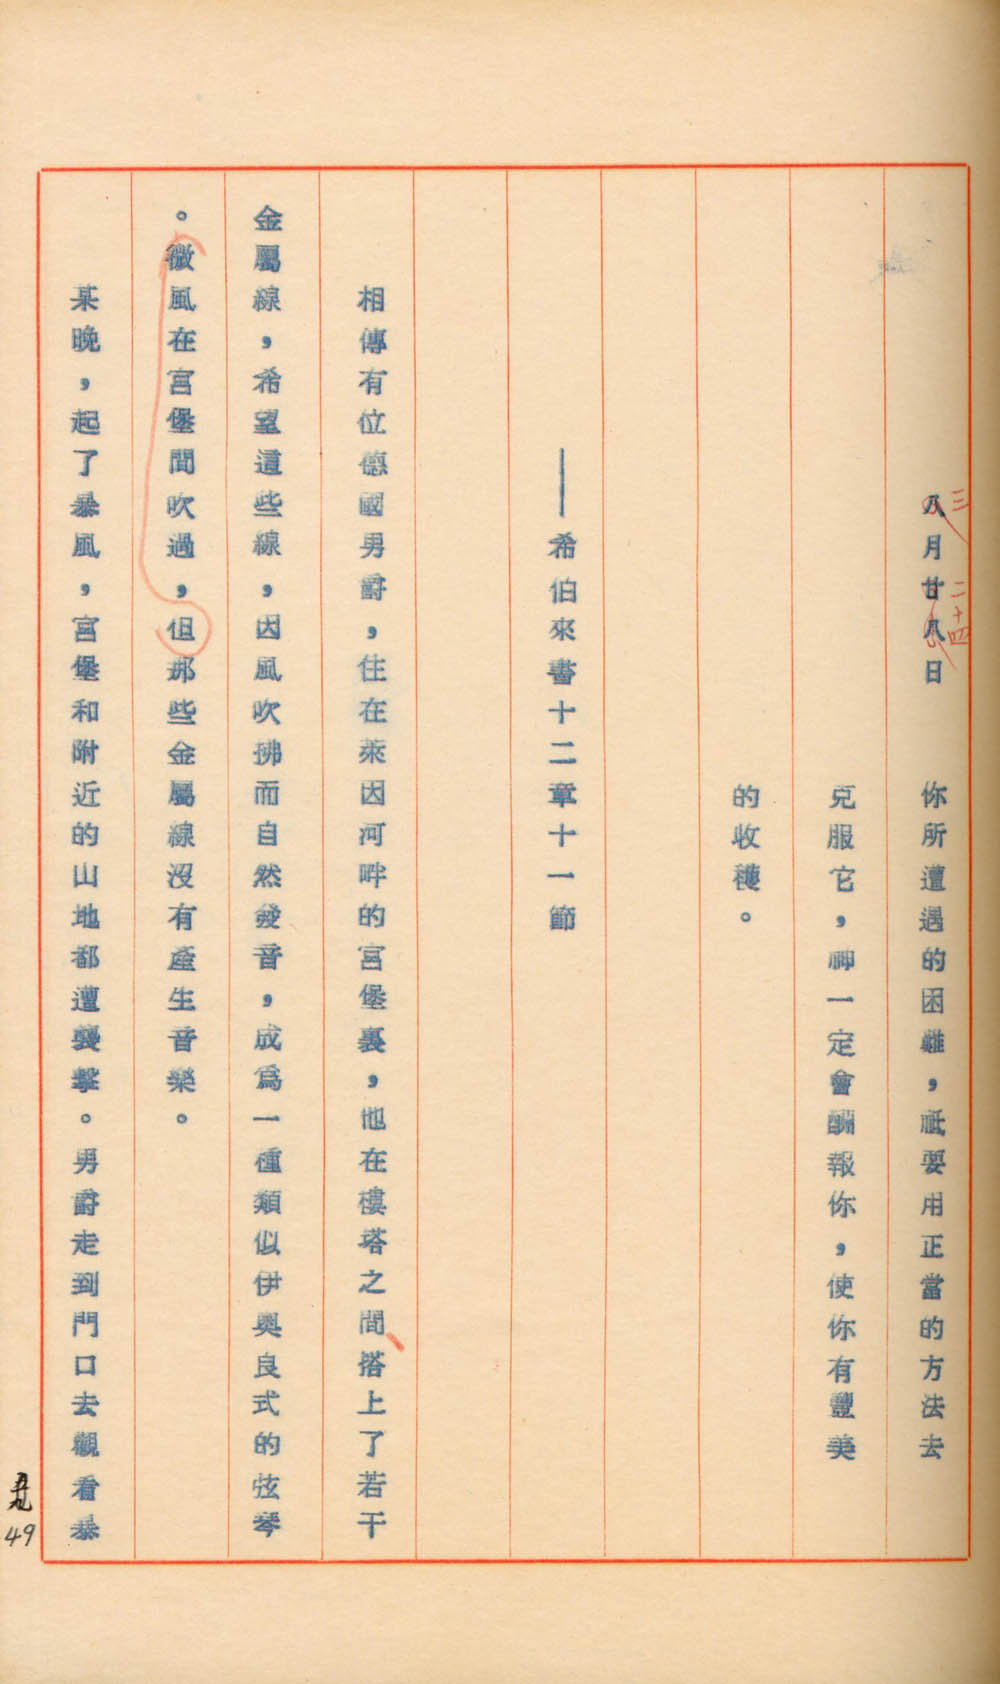 八月廿八日　你所遭遇的困難，祇要用正當的方法去
三
二十四
克服它，神一定會酬報你，使你有豐美
的收穫。
——希伯來書十二章十一節
相傳有位德國男爵，住在萊因河畔的宮堡裏，他在樓塔之間搭上了若干
金屬線，希望這些線，因風吹拂而自然發音，成為一種類似伊奧良式的弦琴
。微風在宮堡間吹過，但那些金屬線沒有產生音樂。
某晚，起了暴風，宮堡和附近的山地都遭襲擊。男爵走到門口去觀看暴
49